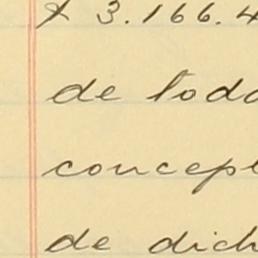 $ 3.166.4
de toda
concept
de dich